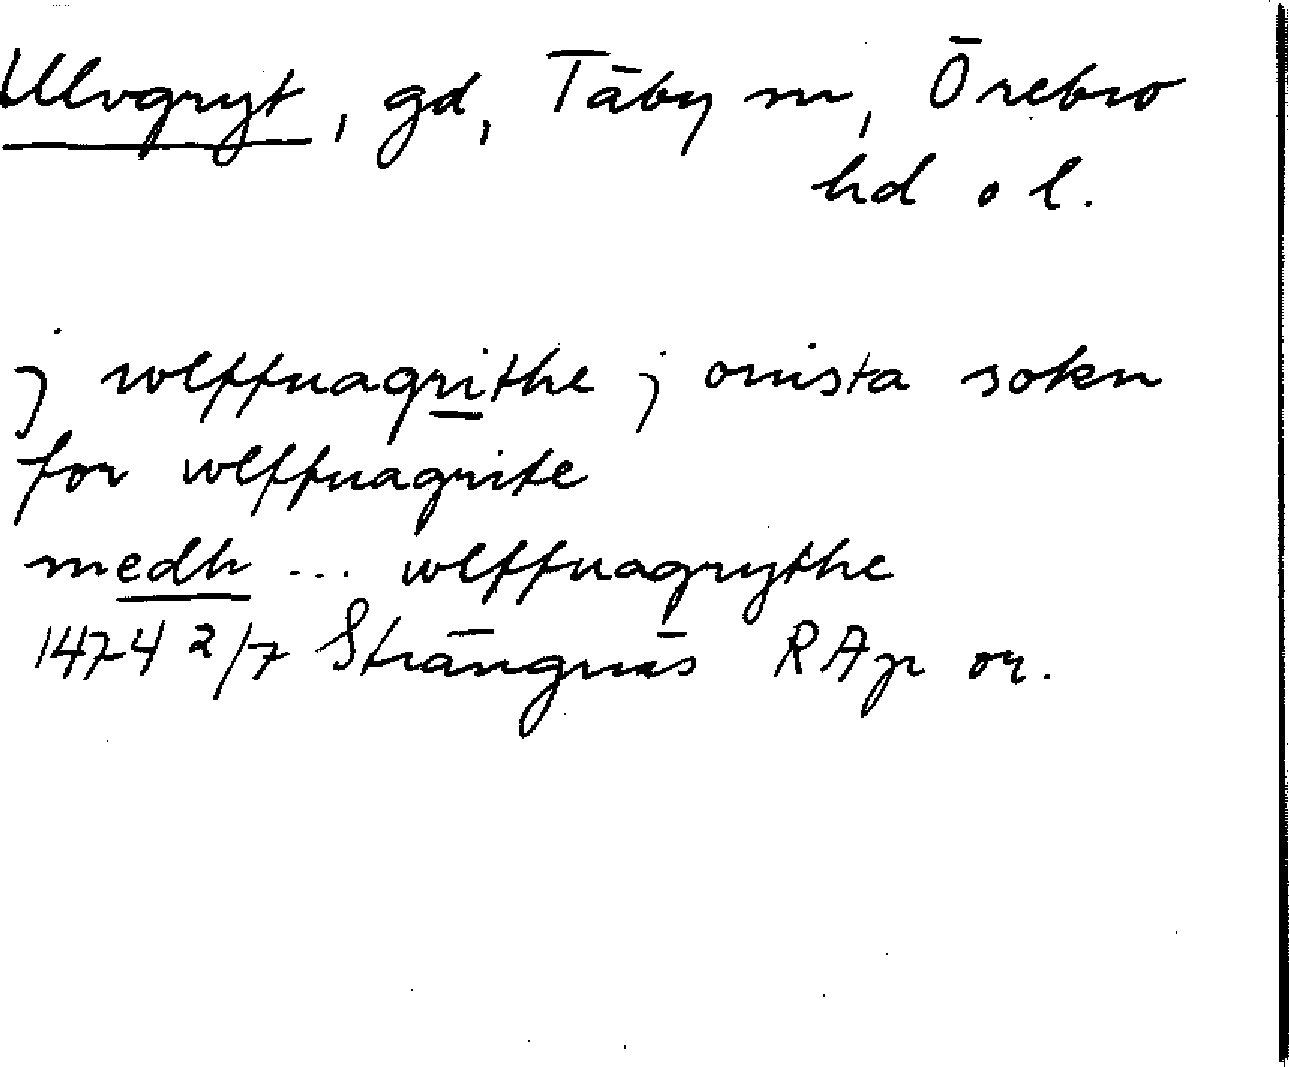 Ulvgryt, gd, Täby sn, Örebro
hd o l.
j wlffuagrithe j onista sokn
for wlffuagrite
medh ... wlffuagrythe
1474 2/7 Strängnäs RAp or.